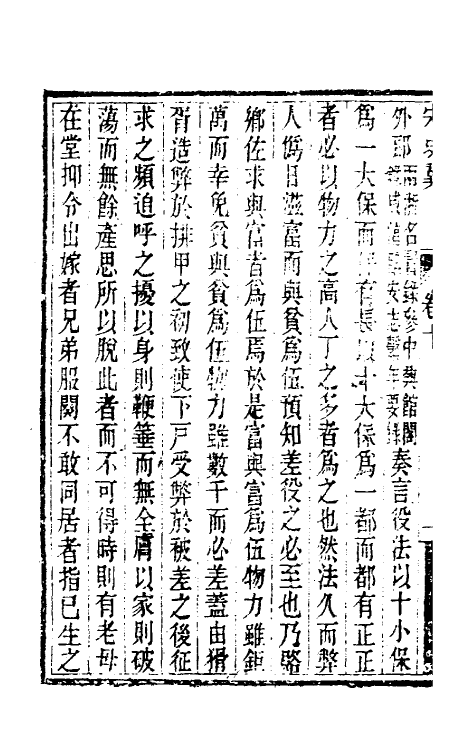 宋史翼 卷十
外郎兩浙名賢錄參中興館閣錄咸淳臨安志慶年要錄奏言役法以十小保
爲一大保而保有長以十大保爲一都而都有正正
者必以物力之高人丁之多者爲之也然法久而弊
人僞日滋富而與貧爲伍預知差役之必至也乃賂
鄉佐求與富者爲伍焉於是富與富爲伍物力雖鉅
萬而幸免貧與貧爲伍物力雖數千而必差蓋由猾
胥造弊於排甲之初致使下戸受弊於被差之後征
求之頻迫呼之擾以身則鞭箠而無全膚以家則破
蕩而無餘產思所以脫此者而不可得時則有老母
在堂抑令出嫁者兄弟服闋不敢同居者指已生之